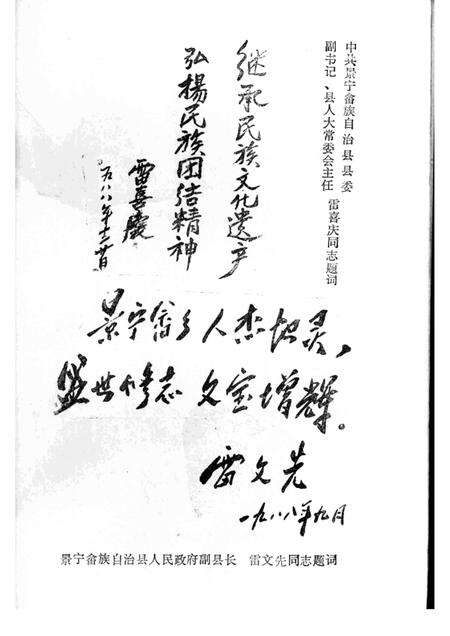 中共景宁畲族自治县县委
副书记、县人大常委会主任 雷喜庆同志题词
继承民族文化遗产
弘揚民族团结精神
雷喜慶
一九八八年十二月廿日
景宁畲乡人杰地灵，
盛世修志 文宝增輝。
雷文先
一九八八年九月
景宁畲族自治县人民政府副县长 雷文先同志题词